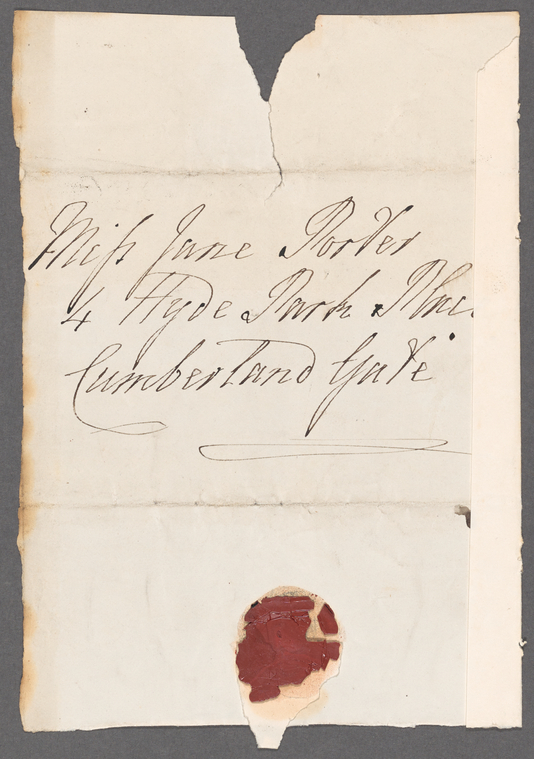 Miſs Jane Porter
4 Hyde Park Place
Cumberland Gate